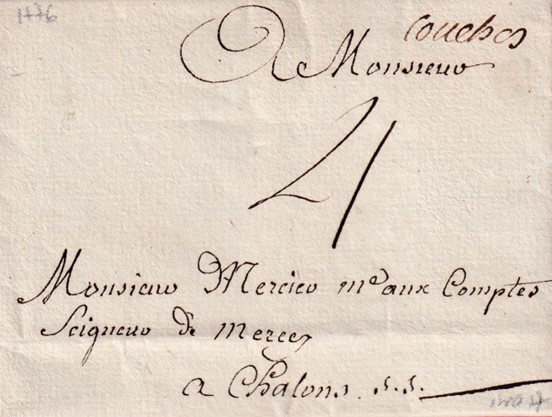 1776
couches
A Monsieur
4
Monsieur Mercier me aux Comptes
Seigneur de mercey
a Chalons. s. s.